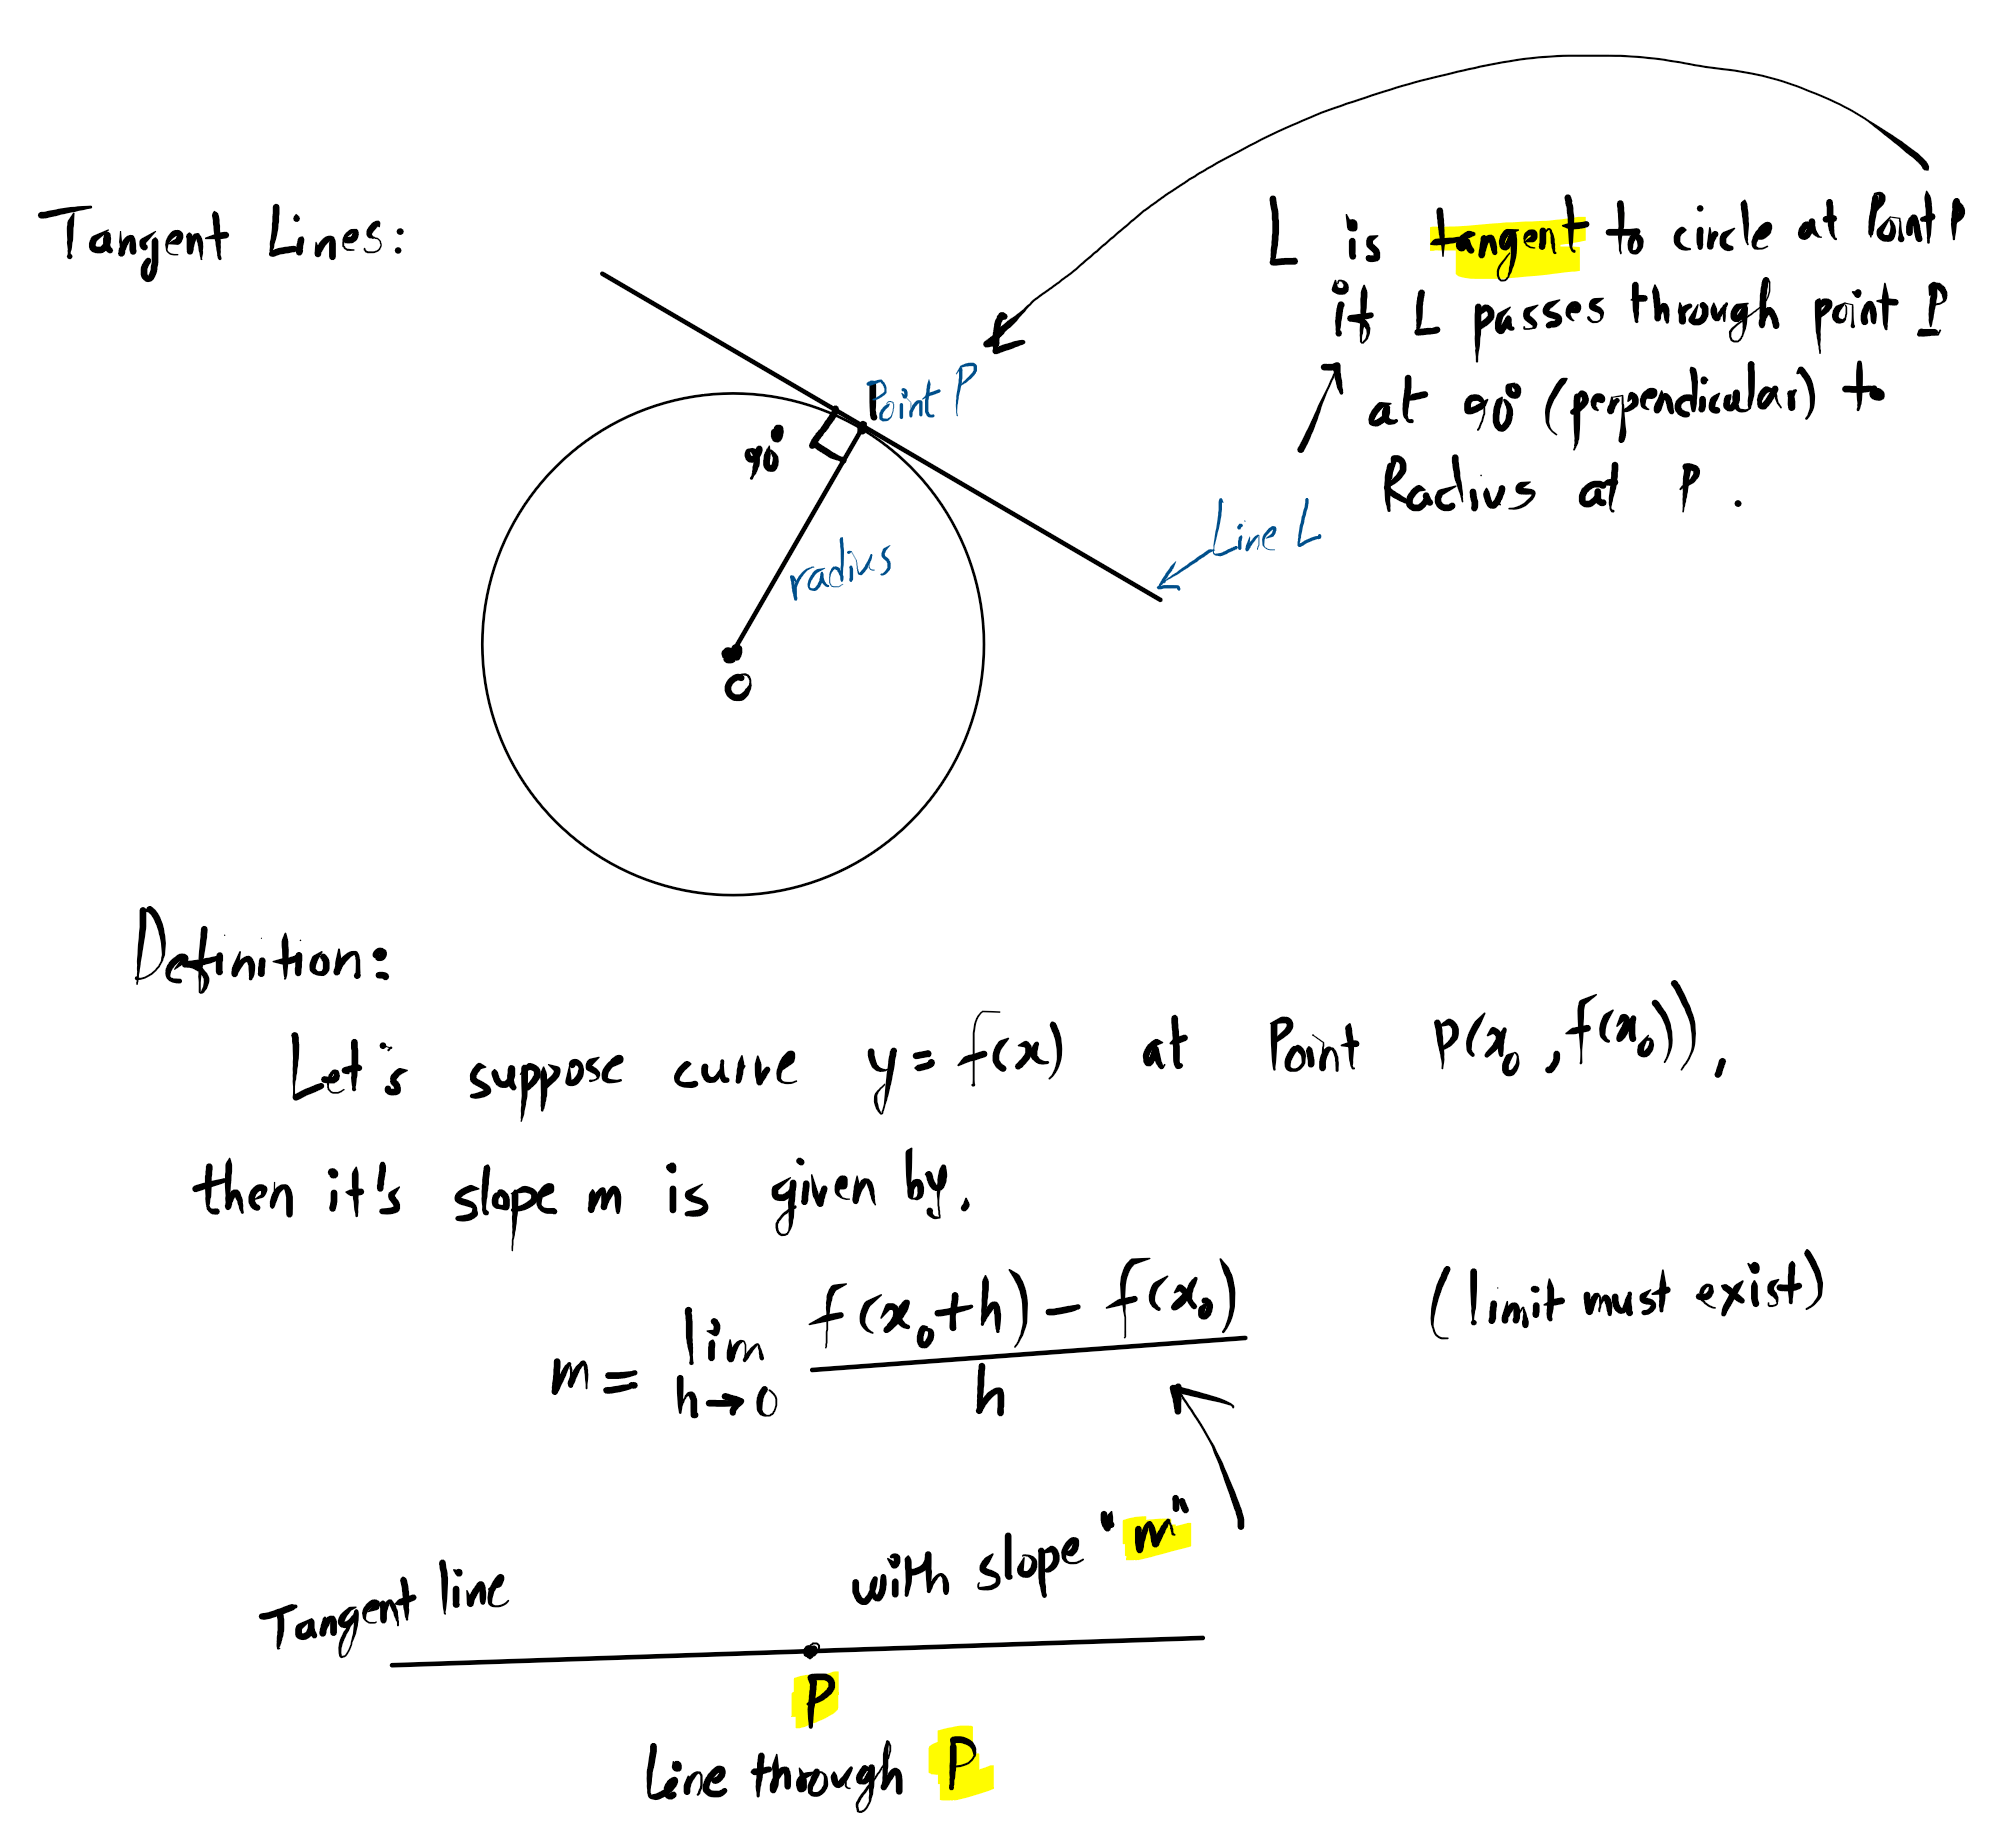 Tangent Lines:
L is tangent to circle at Point P
if L passes through point P
at 90° (perpendicular) to
Radius at P.
Point P
90°
Line L
radius
O
Definition:
Let's suppose curve y = f(x) at Point P(x₀, f(x₀)),
then it's slope m is given by.
m = lim h→0 (f(x₀+h) − f(x₀)) / h (limit must exist)
Tangent line with slope "m"
P
Line through P